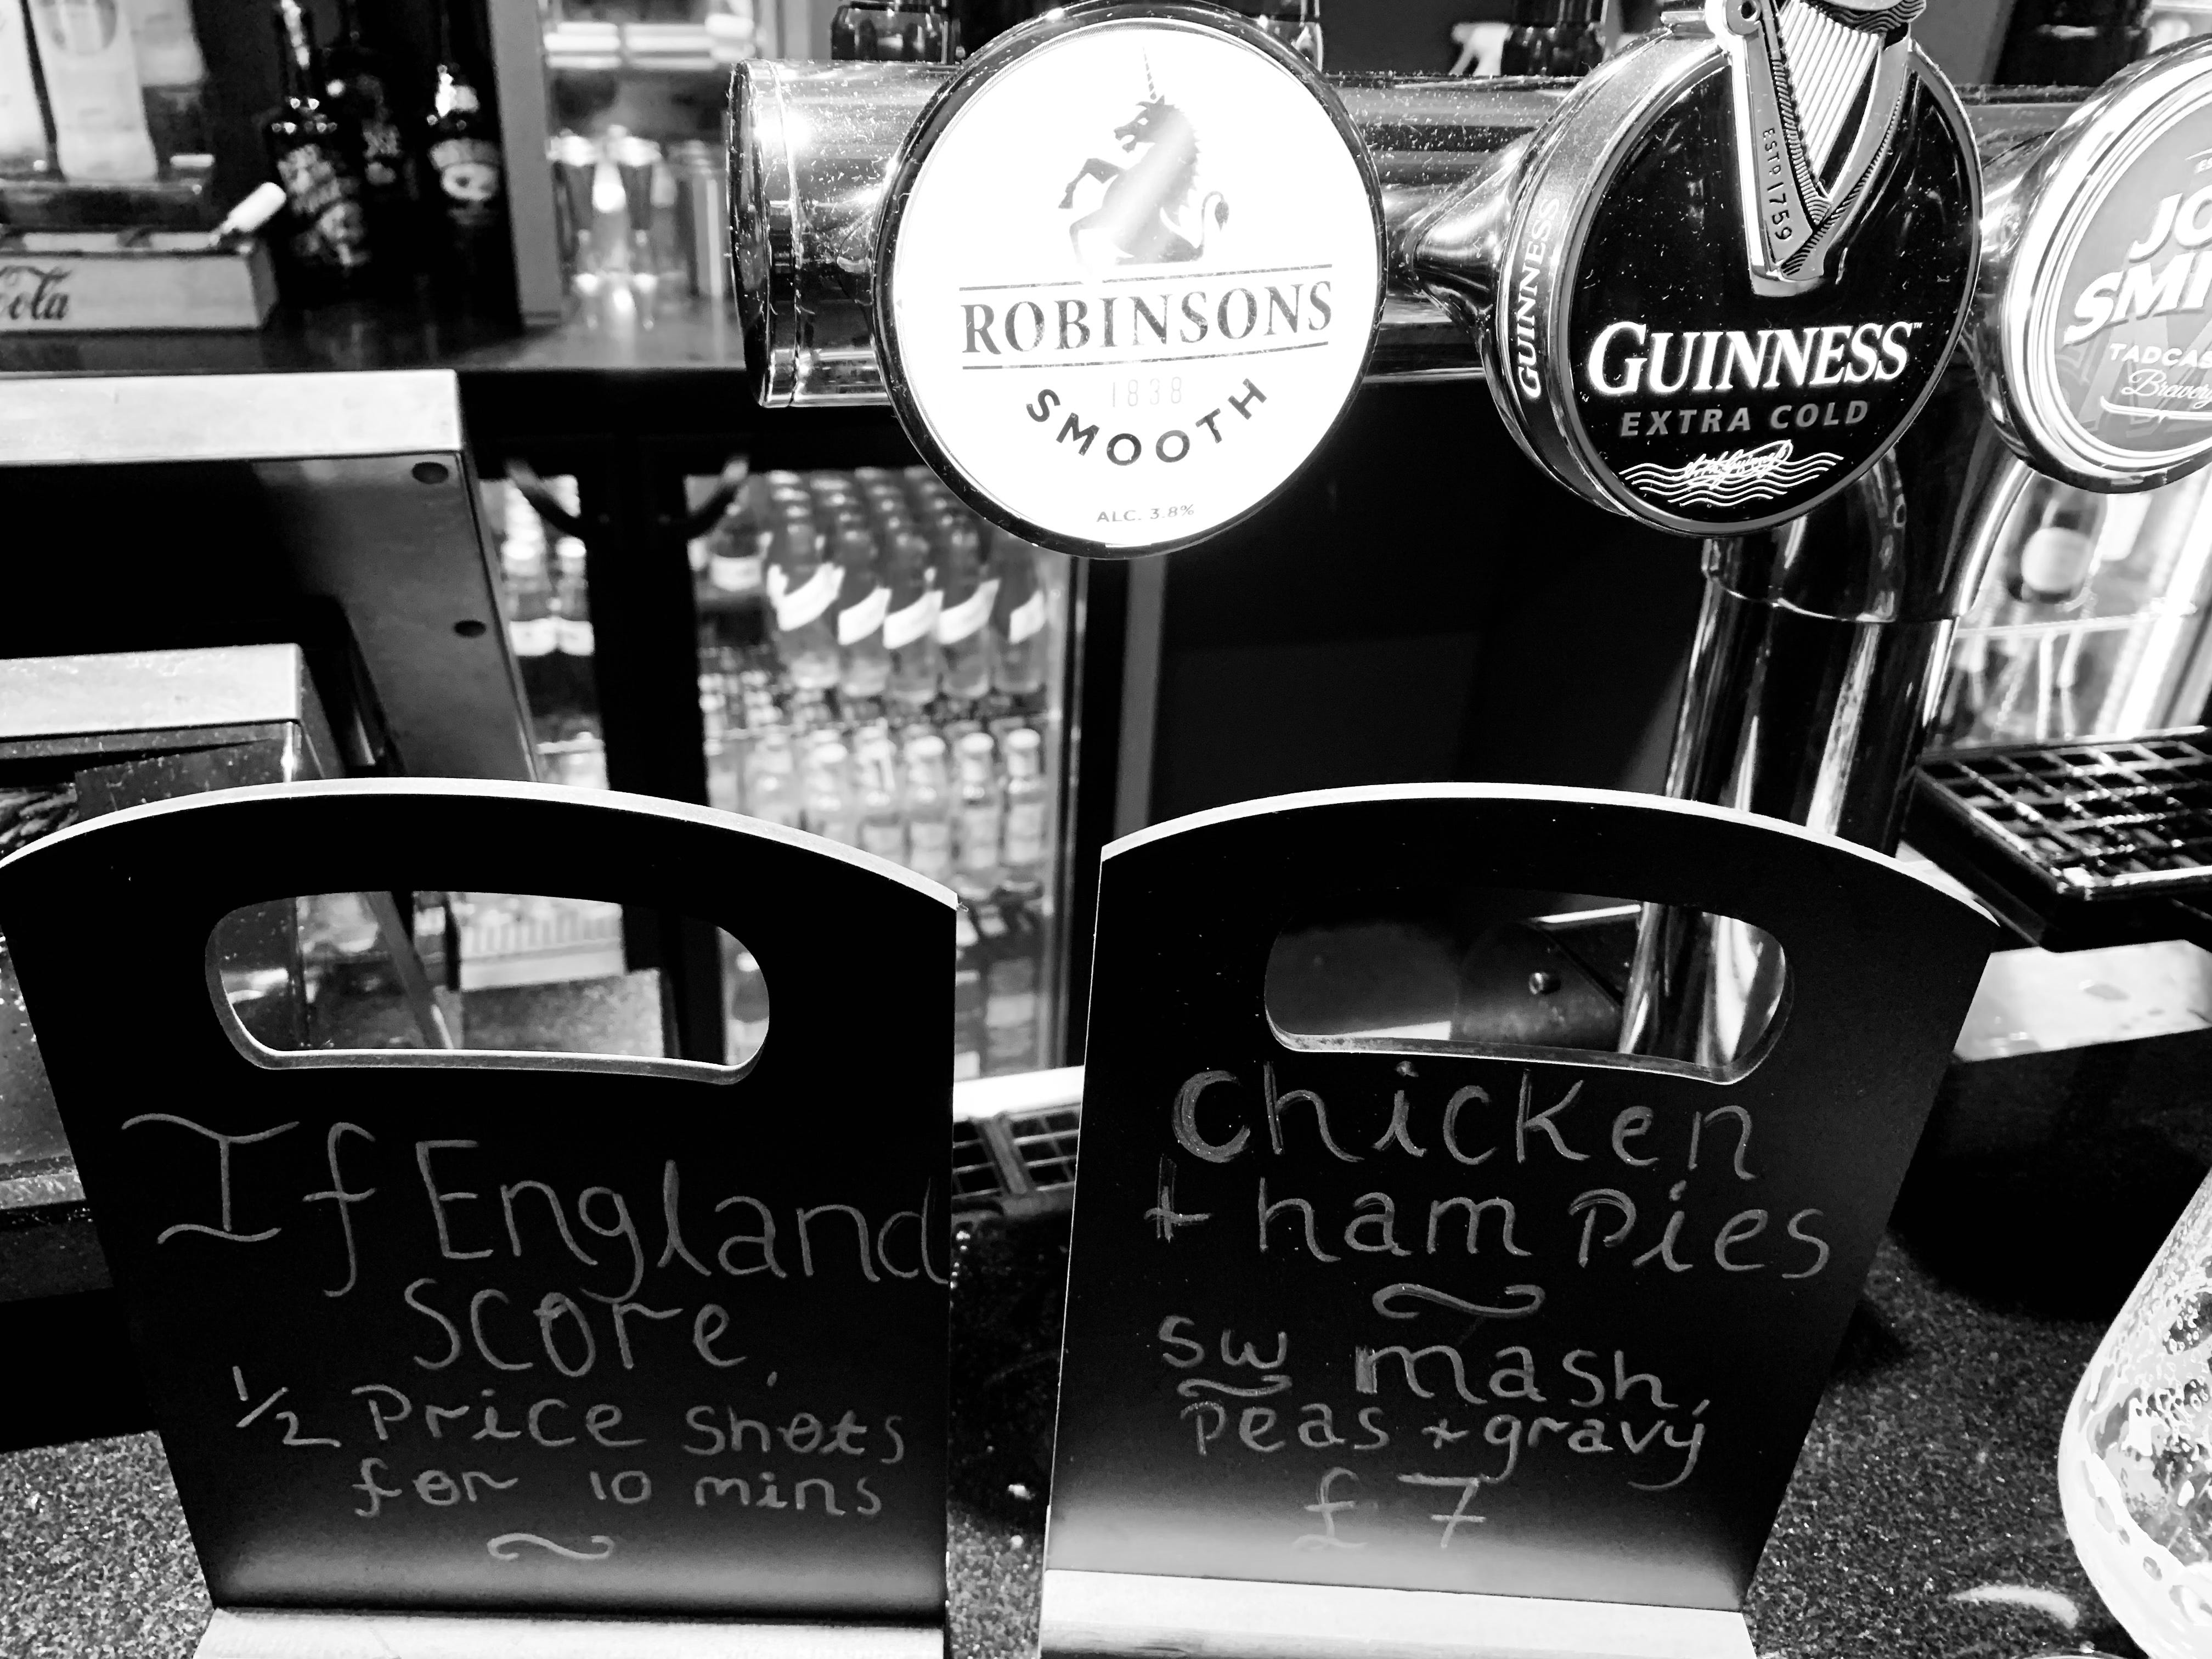 ROBINSONS
1838
SMOOTH
ALC. 3.8%
ESTD 1759
GUINNESS
GUINNESS™
EXTRA COLD
JO
SMI
TADCAS
Brewery
Cola
If England
score,
1/2 Price shots
for 10 mins
Chicken
+ ham Pies
SW mash,
Peas + gravy
£7